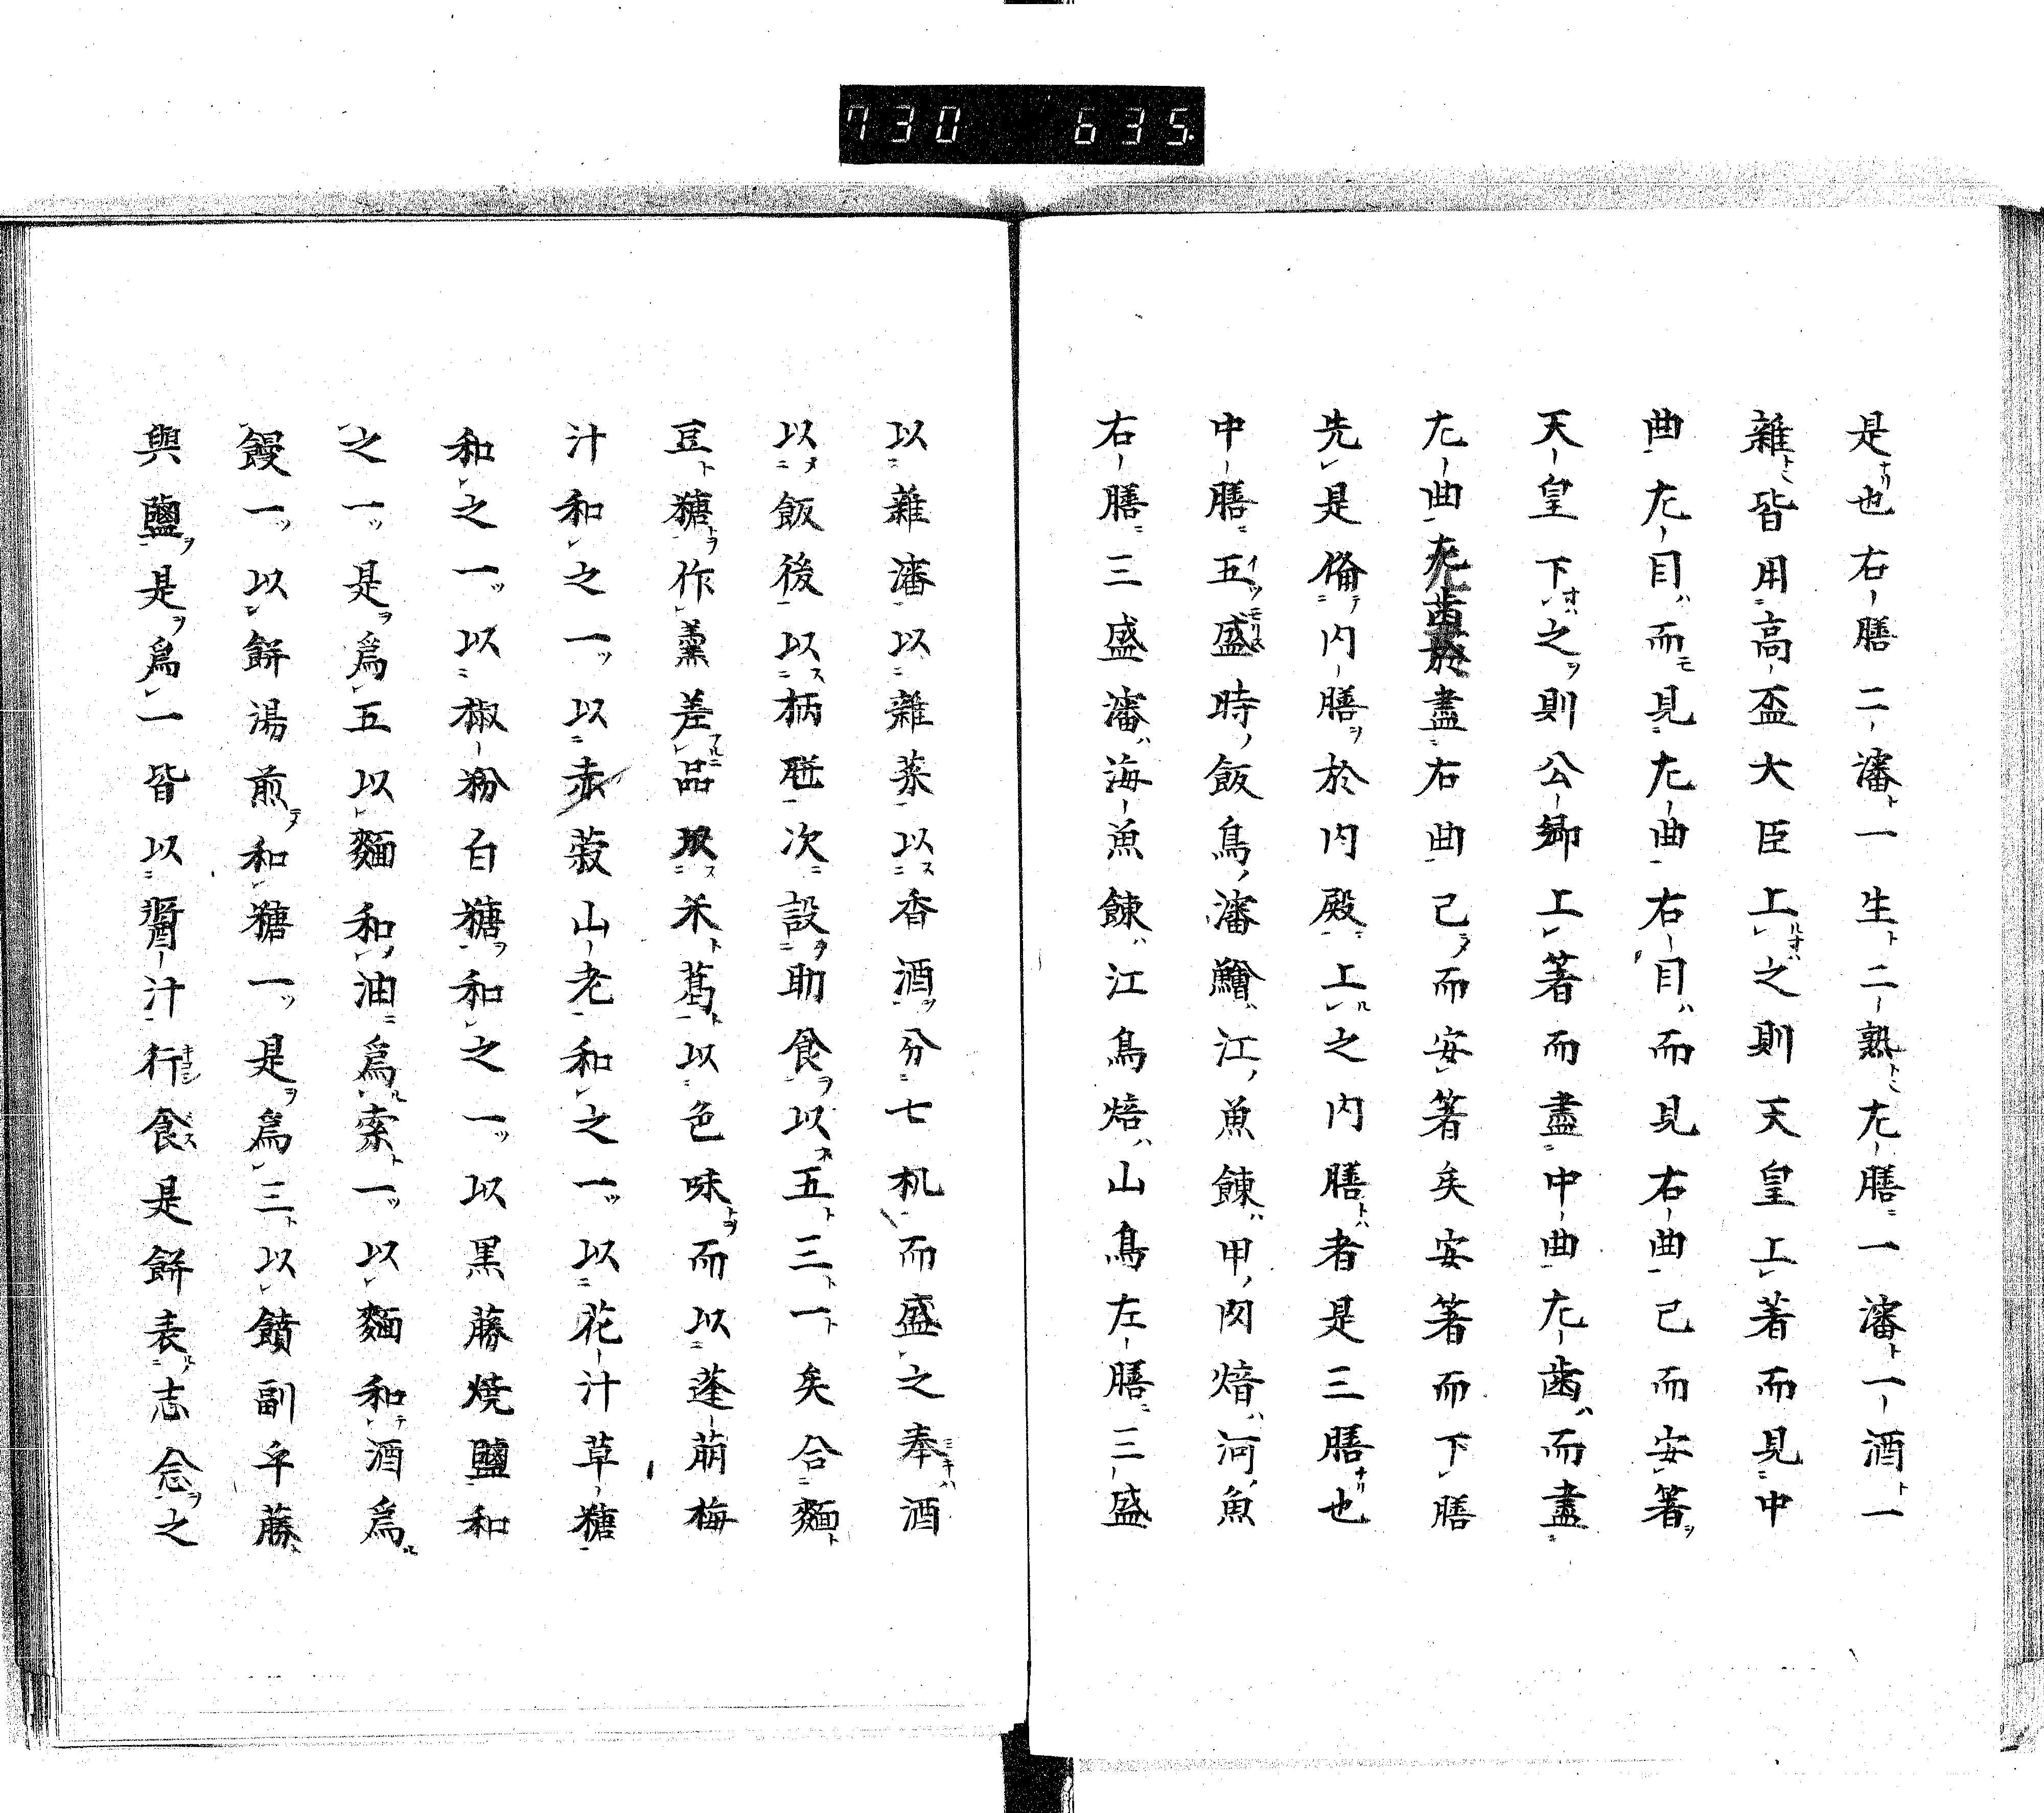 730 635.
是也右膳二瀋一生二熟左膳一瀋一酒一
雜皆用高盃大臣上之則天皇上著而見中
曲左目而見左曲右目而見右曲已而安著
天皇下之則公卿上著而盡中曲左歯而盡
左曲盡右曲已而安著矣安著而下膳
先是偹内膳於内殿上之内膳者是三膳也
中膳五盛時飯鳥瀋鱠江魚餗甲肉焙河魚
右膳三盛瀋海魚餗江鳥焙山鳥左膳三盛
以雜瀋以雜菜以香酒分七机而盛之奉酒
以飯後以柄瓸次設助食以五三一矣合麵
豆糖作羹差品取米葛以色味而以蓬萠梅
汁和之一以赤蔱山老和之一以花汁草糖
和之一以椒粉白糖和之一以黒藤焼鹽和
之一是為五以麵和油為索一以麵和酒為
饅一以餅湯煎和糖一是為三以饙副乎藤
與鹽是為一皆以醤汁行食是餅表志念之